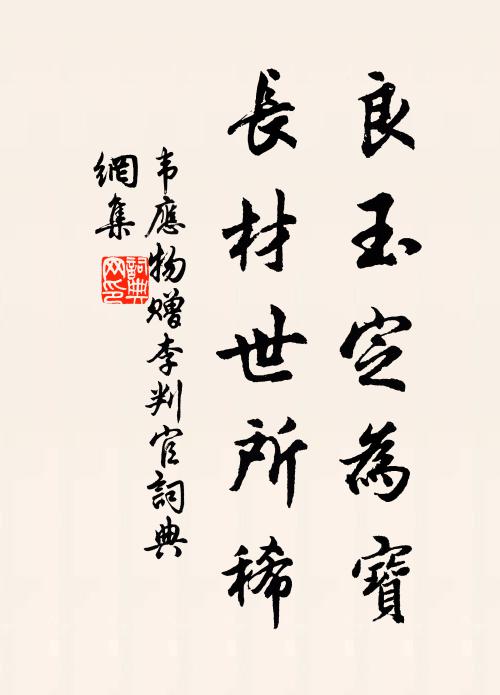 良玉定為寶
長材世所稀
韦應物赠李判官詞典
網集
詞典網印